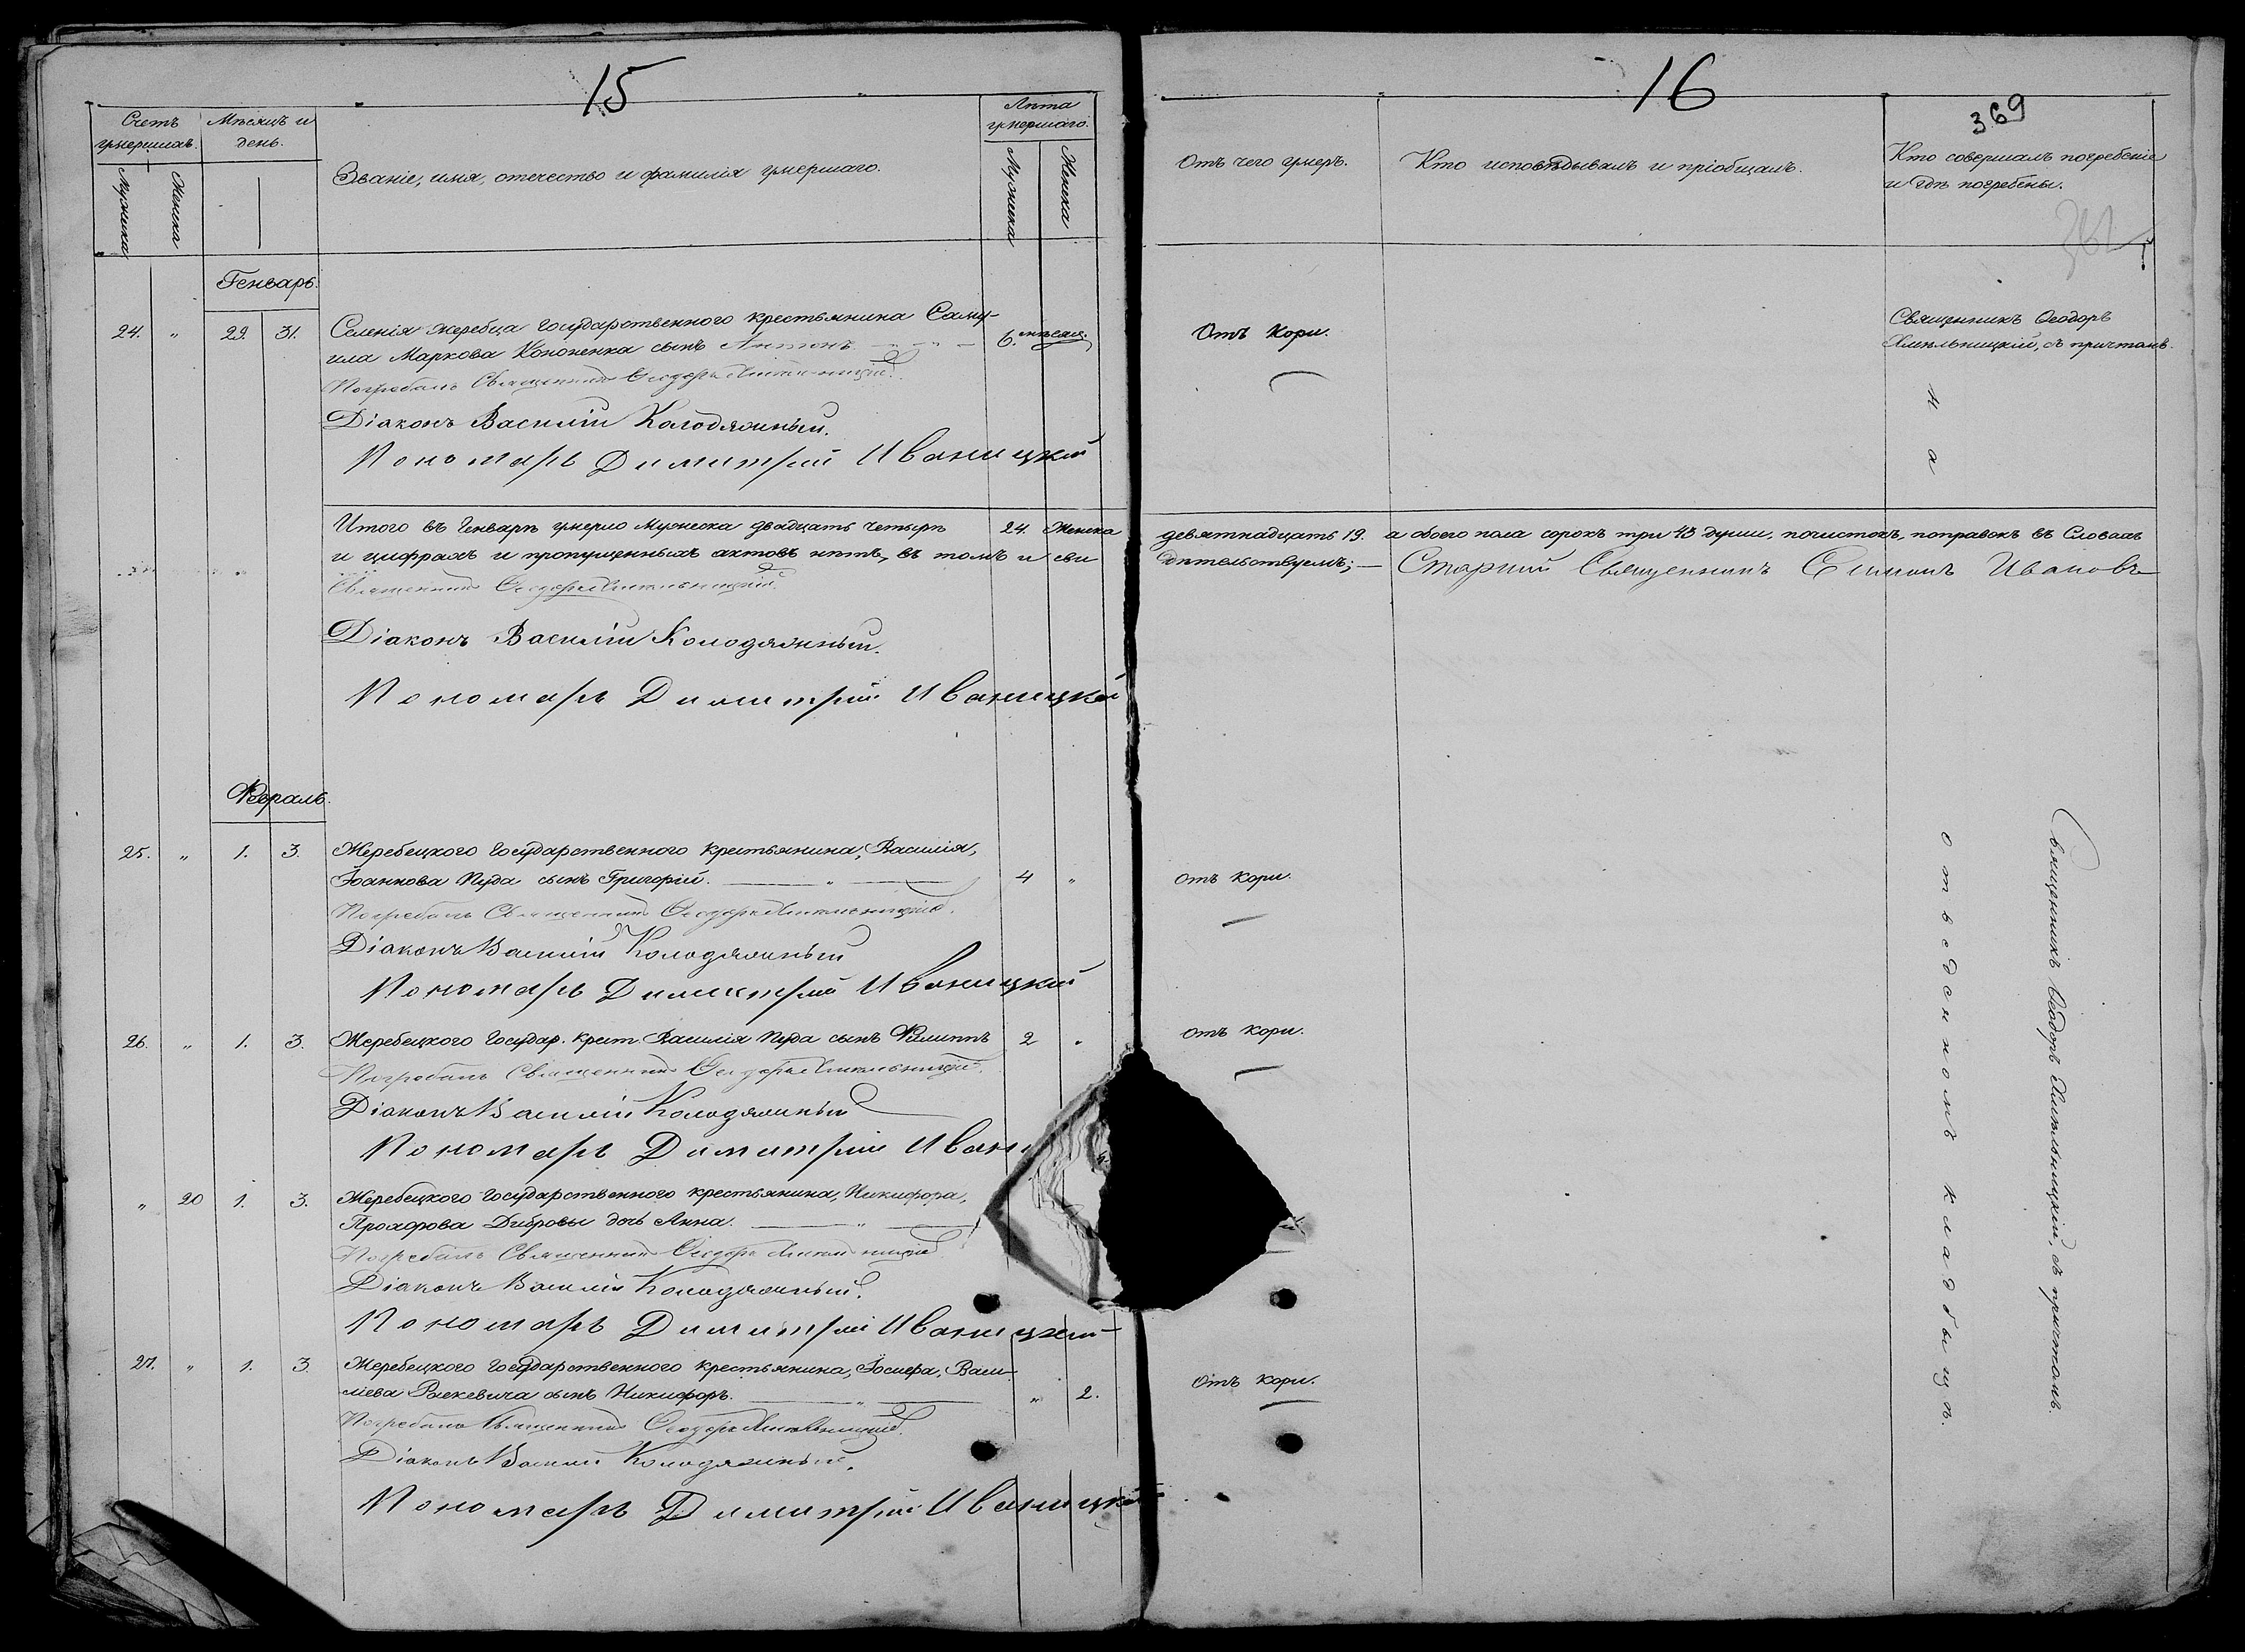 15
Счетъ умершихъ.
Мѣсяцъ и день.
Званіе, имя, отечество и фамилія умершаго.
Лѣта умершаго.
Мужеска
Женска
Мужеска
Женска
Генварь.
24. " 29. 31. Селенія Жеребца Государственного крестьянина Саму-
ила Маркова Кононенка сынъ Антонъ 6. мѣсяц.
Погребалъ Священникъ Ѳеодоръ Хмѣльницкій.
Діаконъ Василій Колодяжный.
Пономарь Димитрій Иваницкій
Итого въ Генварѣ умерло Мужеска двадцать четыре 24. Женска
и цифрахъ и пропущенныхъ актовъ нѣтъ, въ томъ и сви
Священникъ Ѳеодоръ Хмѣльницкій.
Діаконъ Василій Колодяжный.
Пономарь Димитрій Иваницкій
Февраль.
25. " 1. 3. Жеребецкого Государственного крестьянина, Василія,
Іоаннова Пуда сынъ Григорій. " 4 "
Погребалъ Священникъ Ѳеодоръ Хмѣльницкій.
Діаконъ Василій Колодяжный
Пономарь Димитрій Иваницкій
26. " 1. 3. Жеребецкого Государ. крест. Василія Пуда сынъ Филиппъ 2 "
Погребалъ Священникъ Ѳеодоръ Хмѣльницкій.
Діаконъ Василій Колодяжный
Пономарь Димитрій Ивани
" 20 1. 3. Жеребецкого Государственного крестьянина, Никифора,
Прохорова Дибровы дочь Анна. "
Погребалъ Священникъ Ѳеодоръ Хмѣльницкій
Діаконъ Василій Колодяжный.
Пономарь Димитрій Иваницкій
27. " 1. 3 Жеребецкого Государственного крестьянина, Іосифа, Васи-
ліева сынъ Никифоръ. " " 2.
Погребалъ Священникъ Ѳеодоръ Хмѣльницкій.
Діаконъ Василій Колодяжный.
Пономарь Димитрій Иваницкій
16
369
Отъ чего умеръ.
Кто исповѣдывалъ и пріобщалъ.
Кто совершалъ погребеніе
и гдѣ погребены.
Отъ кори.
Священникъ Ѳеодоръ
Хмѣльницкій, съ причтомъ.
на
девятнадцать 19. а обоего пола сорокъ три 43 души, почистокъ, поправокъ въ Словахъ
дѣтельствуемъ; — Старшій Священникъ Симонъ Ивановъ
отъ кори.
отъ кори.
Отъ кори.
отведенномъ кладбищѣ.
Священникъ Ѳеодоръ Хмѣльницкій, съ причтомъ.